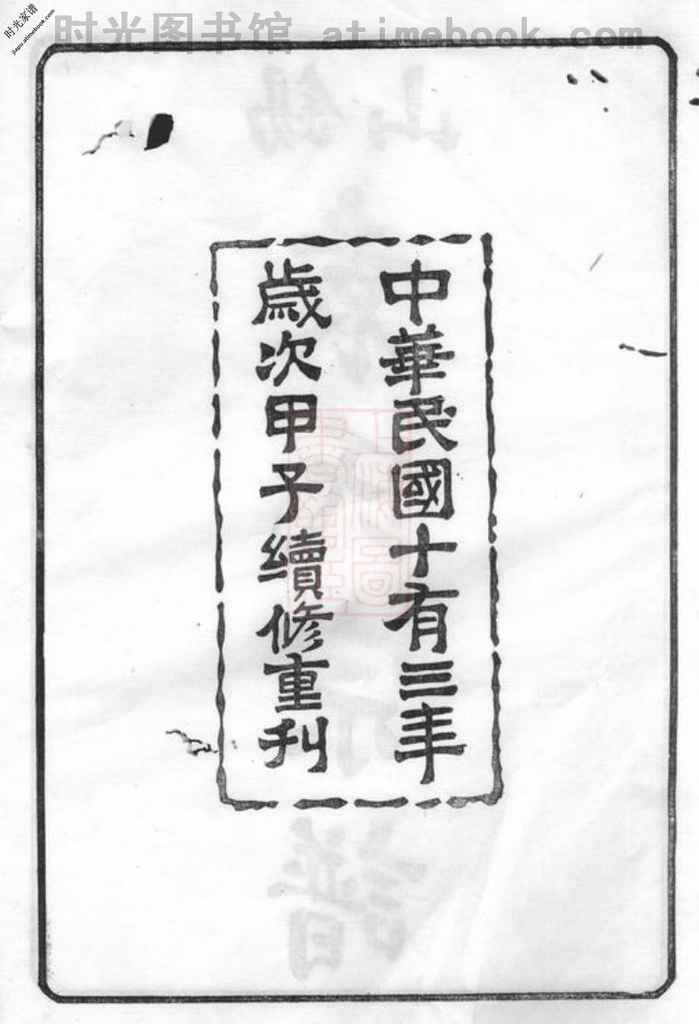 时光图书馆 atimebook.com
时光家谱
jiapu.atimebook.com
中華民國十有三年
歲次甲子續修重刊